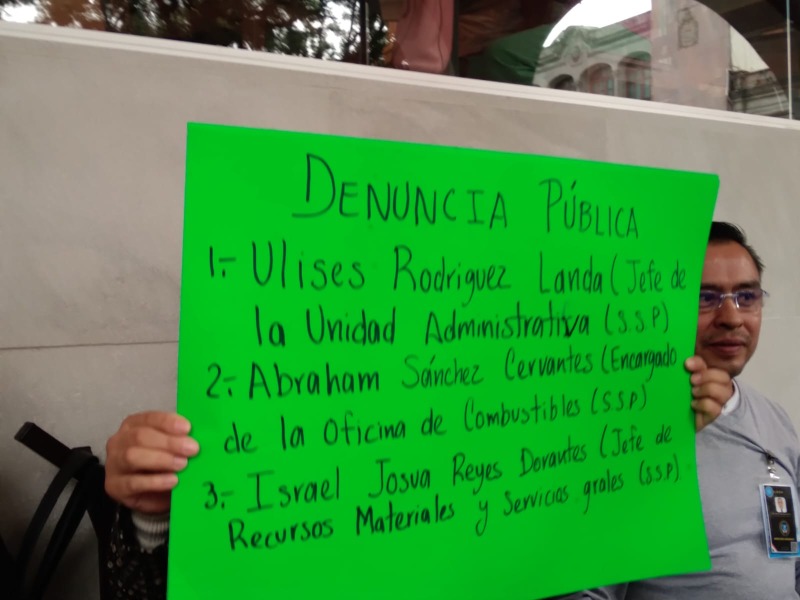 DENUNCIA PÚBLICA
1.- Ulises Rodriguez Landa (Jefe de
la Unidad Administrativa (S.S.P)
2.- Abraham Sánchez Cervantes (Encargado
de la Oficina de Combustibles (S.S.P)
3.- Israel Josua Reyes Dorantes (Jefe de
Recursos Materiales y Servicios grales (S.S.P).